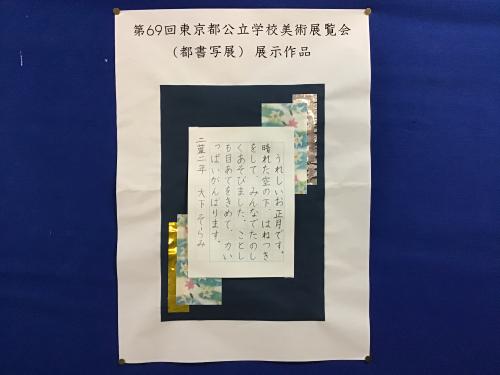 第69回東京都公立学校美術展覧会
（都書写展）展示作品
うれしいお正月です。
晴れた空の下、はねつき
をして、みんなでたのし
くあそびました。ことし
も目あてをきめて、力い
っぱいがんばります。
二葉二年 大下そらみ